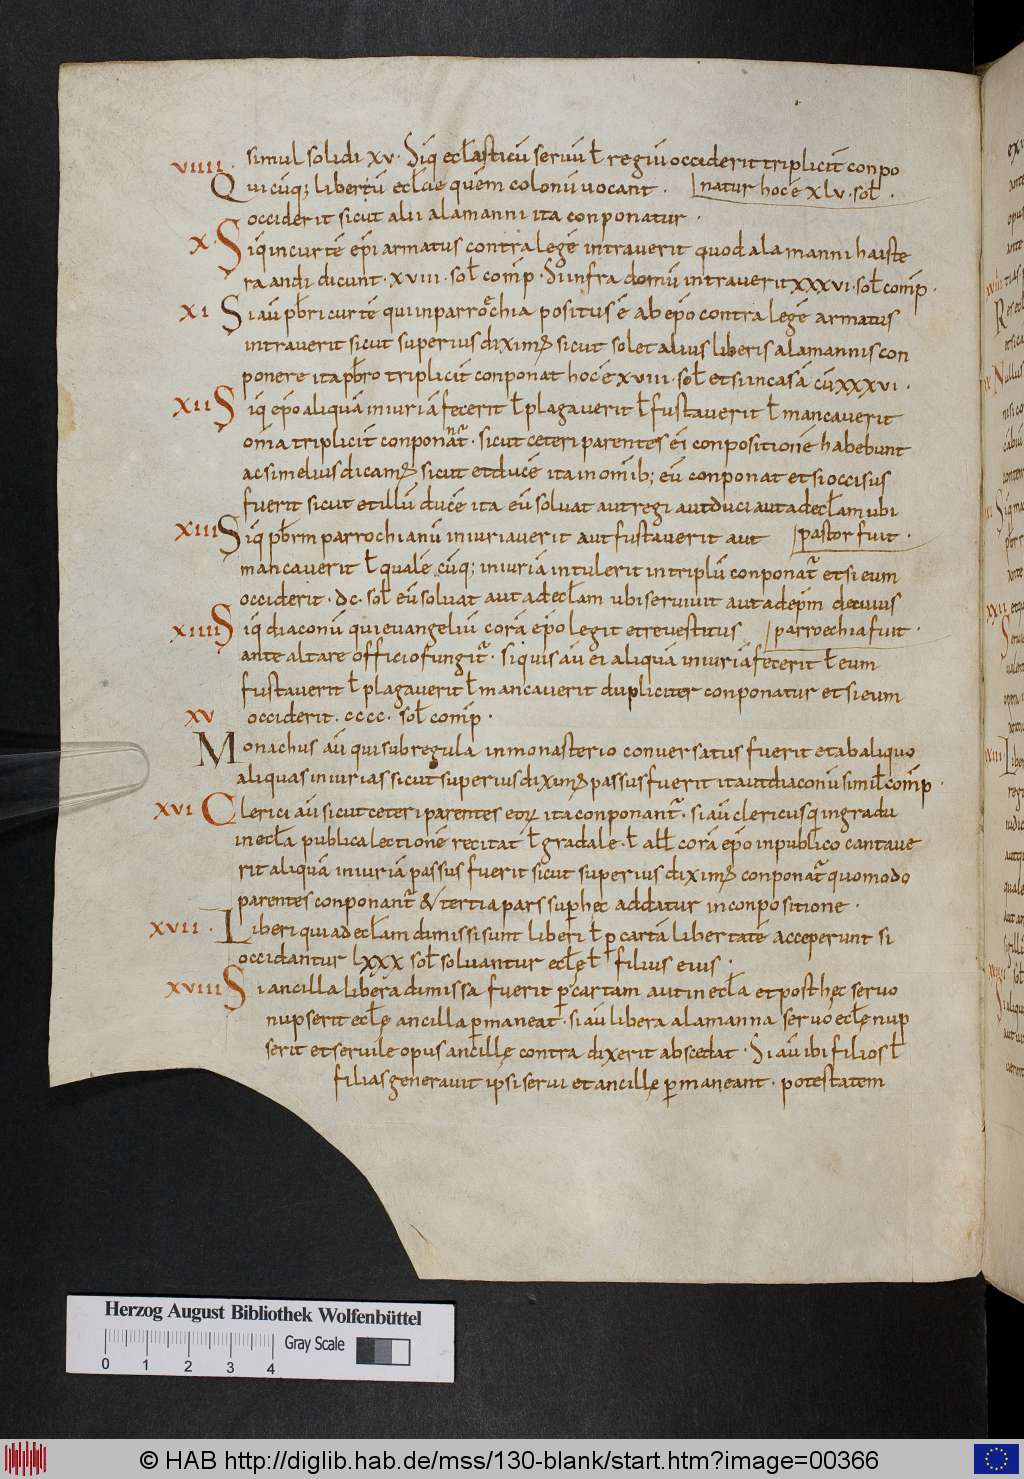 simul solidi xv · Siq̄ ecłasticū servū ł regiū occiderit triplicit̄ conpo
viiii · Quicūq; liberū ecłcie quem colonū vocant · natur hoc ē xlv · sol ·
occiderit sicut alii alamanni ita conponatur ·
x · Siq̄ in curtē ep̄i armatus contra legē intraverit quod alamanni haiste
ra andi dicunt · xviii · soł comp̄ · Si infra domū intraverit xxxvi · soł comp̄ ·
xi Si aū p̄bri curtē qui in parrochia positus ē ab ep̄o contra legē armatus
intraverit sicut superius diximꝰ sicut solet alius liberis alamannis con
ponere ita p̄bro triplicit̄ conponat hoc ē xviii · soł et si in casā cū xxxvi ·
xii Siq̄ ep̄o aliquā iniuriā fecerit ł plagaverit ł fustaverit ł mancaverit
om̄ia triplicit̄ conponant̄ · sicut ceteri parentes ei conpositionē habebunt
ac si melius dicamꝰ sicut et ducē ita in omib; eū conponat et si occisus
fuerit sicut et illū ducē ita eū solvat aut regi aut duci aut ad ecłam ubi
xiii Siq̄ p̄brm parrochianū iniuriaverit aut fustaverit aut pastor fuit ·
mancaverit ł qualē cūq; iniuriā intulerit in triplū conponat̄ et si eum
occiderit · dc · soł eū solvat aut ad ecłam ubi servivit aut ad ep̄m de cuius
xiiii Siq̄ diaconū qui evangeliū corā ep̄o legit et revestitus parroechia fuit ·
ante altare officio fungit̄ · si quis aū ei aliquā iniuriā fecerit ł eum
fustaverit ł plagaverit ł mancaverit dupliciter conponatur et si eum
xv occiderit · cccc · soł comp̄ ·
Monachus aū qui sub regula in monasterio conversatus fuerit et ab aliquo
aliquas iniurias sicut superius diximꝰ passus fuerit ita ut diaconū simił comp̄ ·
xvi Clerici aū sicut ceteri parentes eoꝝ ita conponant̄ · si aū clericus q̄ in gradu
in ecła publica lectionē recitat ł gradale · ł ałł corā ep̄o in publico cantave
rit aliquā iniuriā passus fuerit sicut superius diximꝰ conponat̄ quomodo
parentes conponant̄ & tertia pars sup̄ hec addatur in conpositione ·
xvii · Liberi qui ad ecłam dimissi sunt liberi ł p̄ cartā libertatē acceperunt si
occidantur lxxx soł solvantur ecłę ł filius eius ·
xviii Si ancilla libera dimissa fuerit p̄ cartam aut in ecła et post hec servo
nupserit ecłę ancilla p̄maneat · si aū libera alamanna servo ecłę nup
serit et servile opus ancillę contra dixerit abscedat · Si aū ibi filios ł
filias generavit ipsi servi et ancillę p̄maneant · potestatem
Herzog August Bibliothek Wolfenbüttel
Gray Scale
0 1 2 3 4
© HAB http://diglib.hab.de/mss/130-blank/start.htm?image=00366